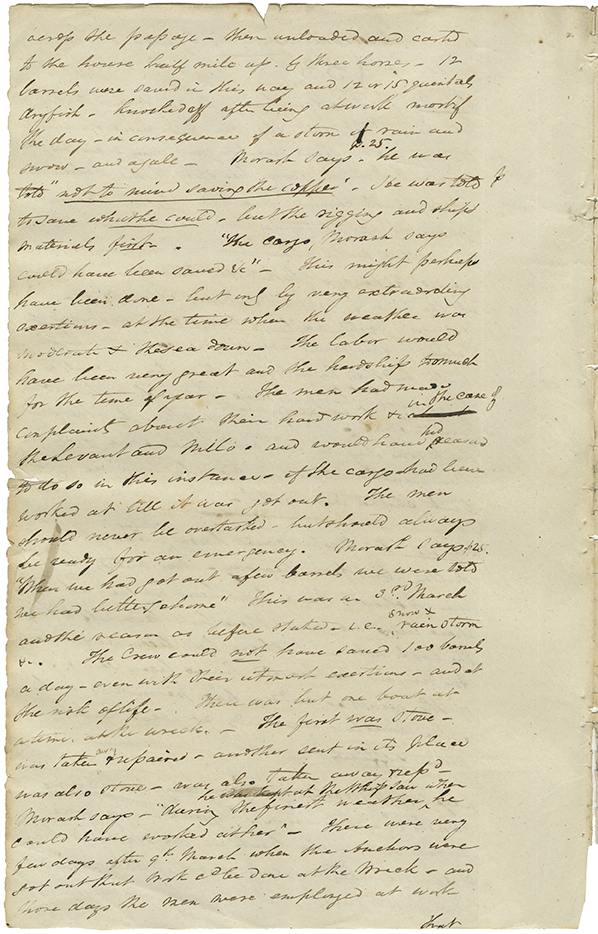 across the passage - then unloaded and carted
to the house half mile up. by three horses - 12
barrels were saved in this way and 12 or 15 quentals
dryfish - knocked off after being at work most of
the day - in consequence of a storm of rain and
snow - and a gale - Morash says p. 25. "he was
told "not to mind saving the copper" - he was told
to save what he could - but the rigging and ships
materials first - . "The cargo, Morash says
could have been saved &c" - This might perhaps
have been done - but only by very extraordiny
exertions - at the time when the weather was
moderate & the sea down - The labor would
have been very great and the hardships too much
for the time of year - The men had made
complaints about their hard work & in the case of
the Levant and Milo - and would have had reason
to do so in this instance - if the cargo had been
worked at till it was got out. The men
should never be overtasked - but should always
be ready for an emergency. Morash says p25.
"When we had got out a few barrels we were told
we had better go home" This was on 3rd. March
and the reason as before stated - i.e. snow & rain storm
&c. The Crew could not have saved 100 barrels
a day - even with their utmost exertions - and at
the risk of life - There was but one boat at
a time at the wreck. - The first was stove -
was taken away & repaired - another sent in its place
was also stove - was also taken away & repd -
Morash says - "during the finest weather, he was kept at the Whip saw when he
could have worked at her" - There were very
few days after 9th March when the Anchors were
got out that work cd be done at the Wreck - and
those days the men were employed at work
that